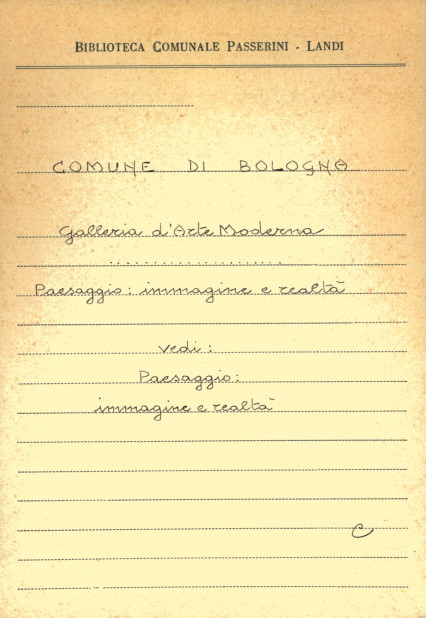 BIBLIOTECA COMUNALE PASSERINI - LANDI
COMUNE DI BOLOGNA
Galleria d'Arte Moderna
.....................
Paesaggio: immagine e realtà
vedi:
Paesaggio:
immagine e realtà
C